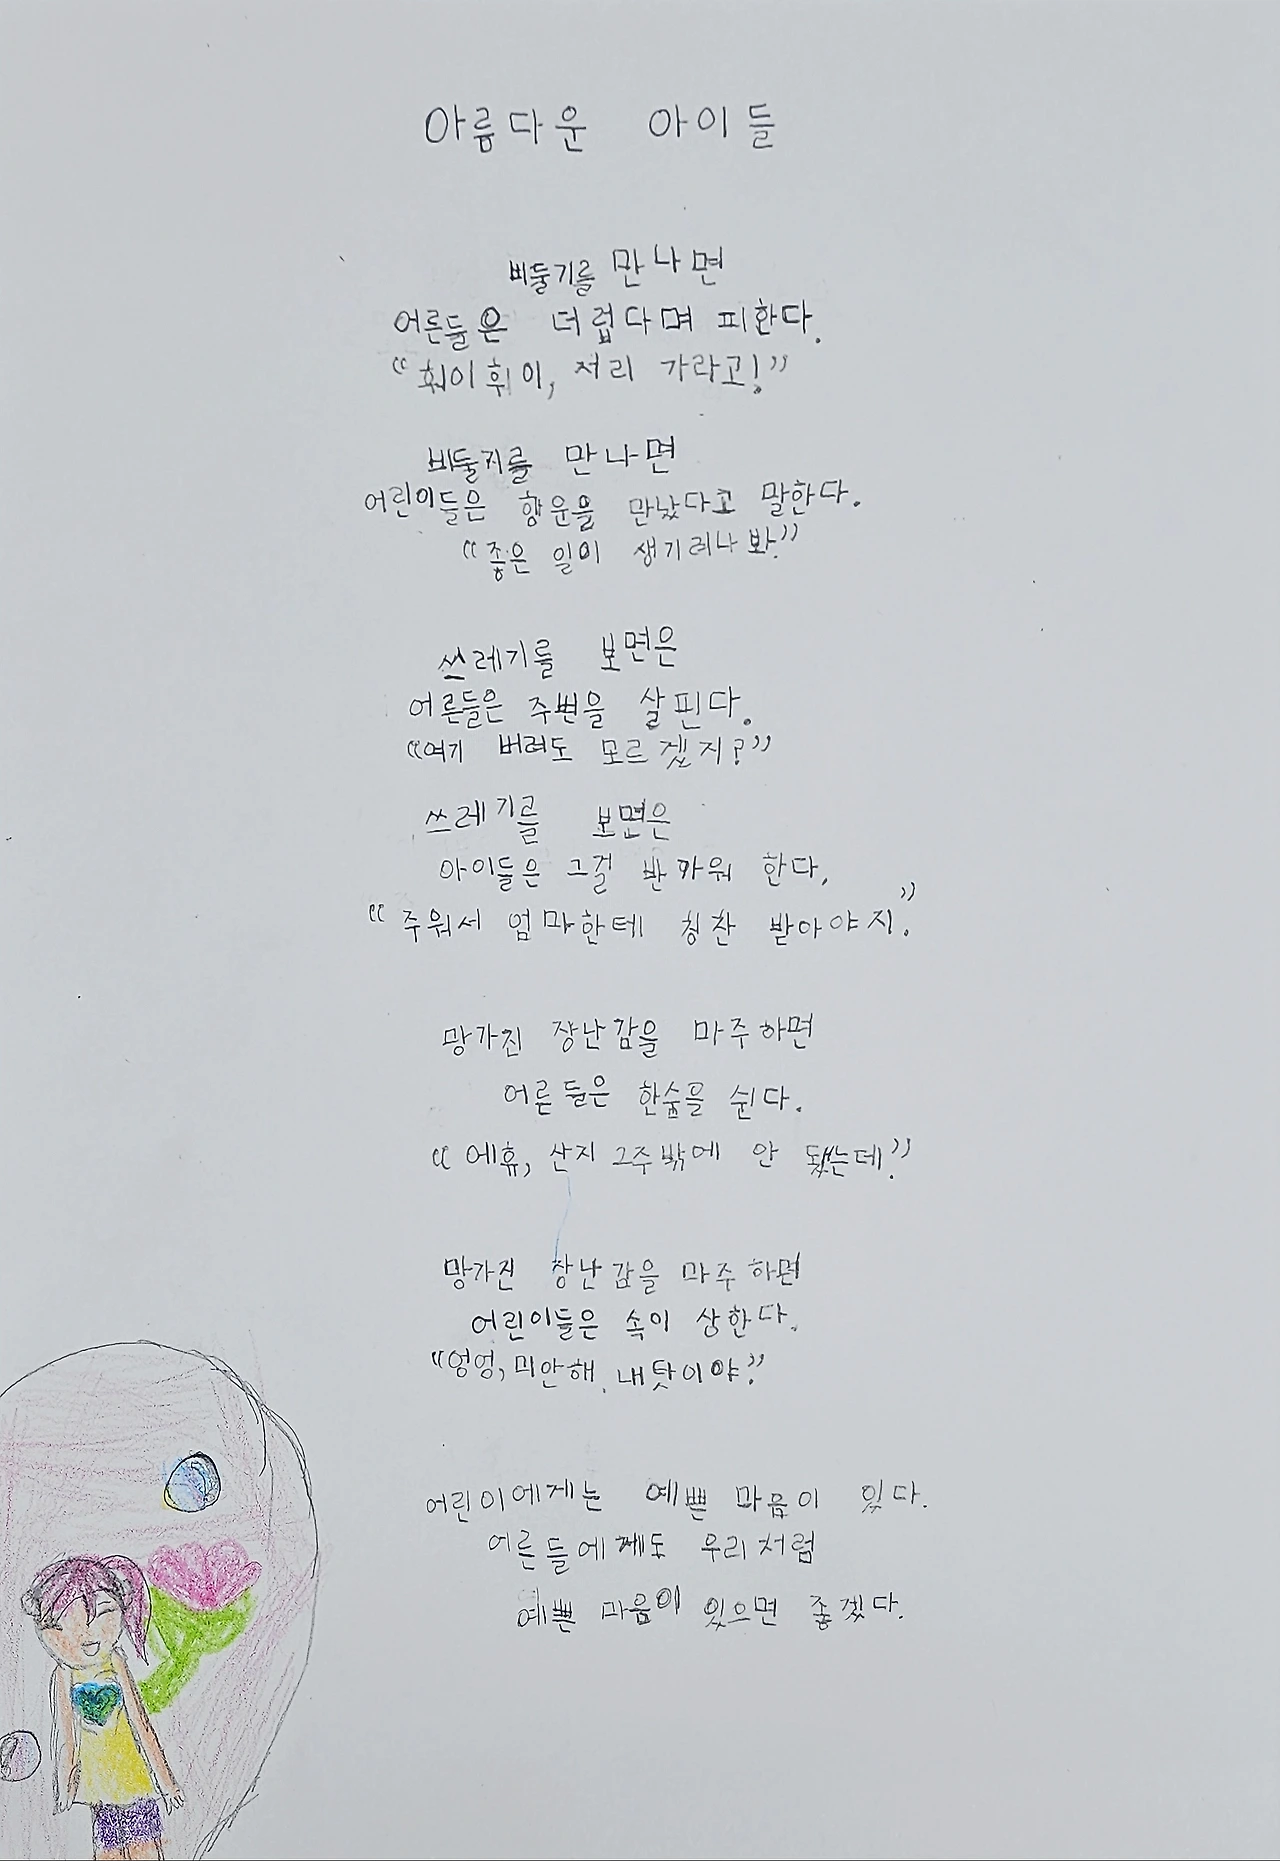 아름다운 아이들
비둘기를 만나면
어른들은 더럽다며 피한다.
“훠이휘이, 저리 가라고!”
비둘기를 만나면
어린이들은 행운을 만났다고 말한다.
“좋은 일이 생기려나 봐.”
쓰레기를 보면은
어른들은 주변을 살핀다.
“여기 버려도 모르겠지?”
쓰레기를 보면은
아이들은 그걸 반가워 한다.
“주워서 엄마한테 칭찬 받아야지.”
망가진 장난감을 마주하면
어른들은 한숨을 쉰다.
“에휴, 산지 2주밖에 안 됐는데.”
망가진 장난감을 마주하면
어린이들은 속이 상한다.
“엉엉, 미안해. 내 탓이야.”
어린이에게는 예쁜 마음이 있다.
어른들에게도 우리처럼
예쁜 마음이 있으면 좋겠다.